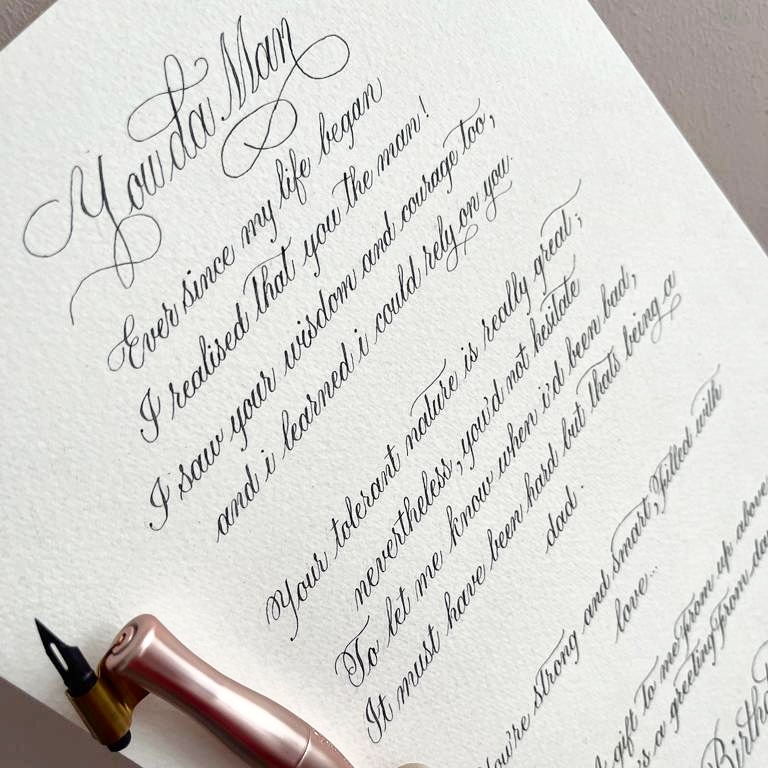 You da Man
Ever since my life began
I realised that you the man!
I saw your wisdom and courage too,
and i learned i could rely on you.
Your tolerant nature is really great;
nevertheless, you'd not hesitate
To let me know when i'd been bad,
It must have been hard but thats being a
dad.
You're strong and smart, Filled with
love...
gift to me from up above
a greeting from